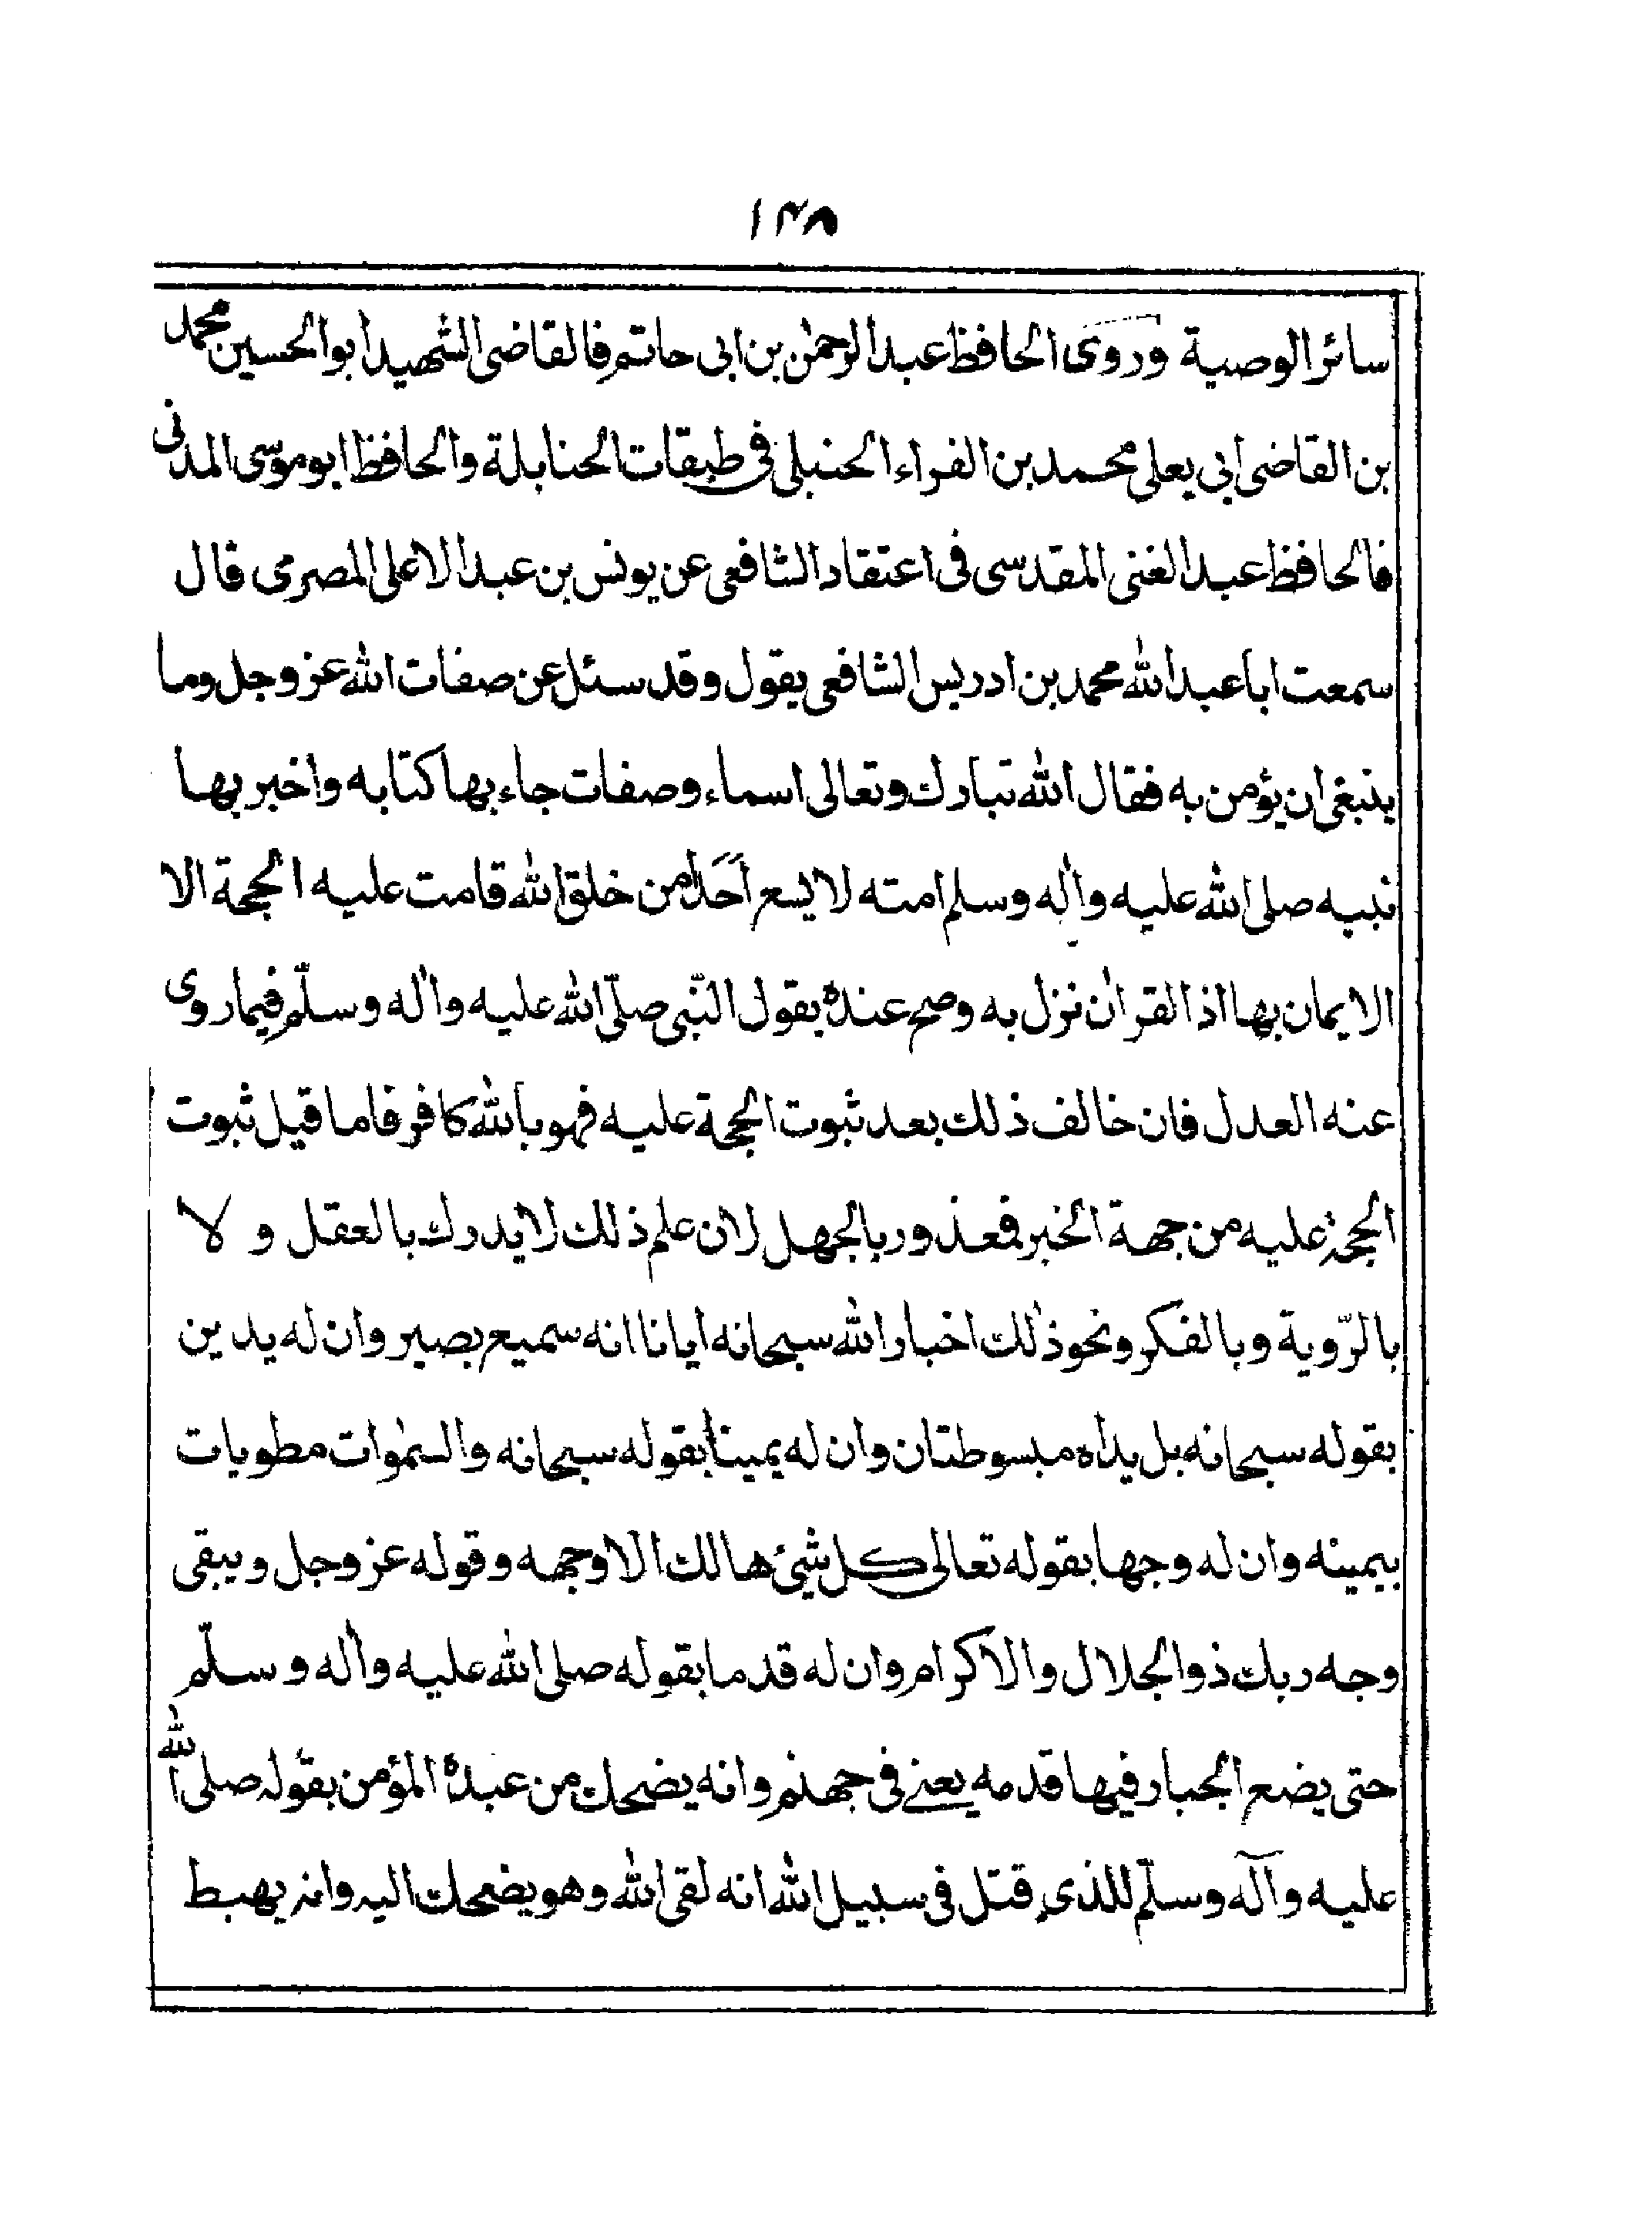 ۱۴۸
سائر الوصية وروى الحافظ عبد الرحمٰن بن ابى حاتم فالقاضى الشهيد ابوالحسين محمد
بن القاضى ابى يعلى محمد بن الفراء الحنبلى فى طبقات الحنابلة والحافظ ابو موسى المدنى
فالحافظ عبد الغنى المقدسى فى اعتقاد الشافعى عن يونس بن عبد الاعلى المصرى قال
سمعت ابا عبد الله محمد بن ادريس الشافعى يقول وقد سئل عن صفات الله عز وجل وما
ينبغى ان يؤمن به فقال الله تبارك وتعالى اسماء وصفات جاء بها كتابه واخبر بها
نبيه صلى الله عليه واٰله وسلم امته لا يسع احدًا من خلق الله قامت عليه الحجة الا
الايمان بها اذ القراٰن نزل به وصح عندهٗ بقول النّبى صلّى الله عليه واٰله وسلّم فيما روى
عنه العدل فان خالف ذلك بعد ثبوت الحجة عليه فهو بالله كافر فاما قيل ثبوت
الحجة عليه من جهة الخبر فمعذور بالجهل لان علم ذلك لا يدرك بالعقل و لا
بالرّوية وبالفكر ونحو ذٰلك اخبار الله سبحانه ايانا انه سميع بصير وان له يدين
بقوله سبحانه بل يداه مبسوطتان وان له يمينا بقوله سبحانه والسمٰوات مطويات
بيمينه وان له وجها بقوله تعالى كل شئ هالك الا وجهه وقوله عز وجل ويبقى
وجه ربك ذو الجلال والاكرام وان له قدما بقوله صلى الله عليه واٰله وسلّم
حتى يضع الجبار فيها قدمه يعنے فى جهنم وانه يضحك من عبدهٗ المؤمن بقوله صلى الله
عليه وآله وسلّم للذى قتل فى سبيل الله انه لقى الله وهو يضحك اليه وانه يهبط